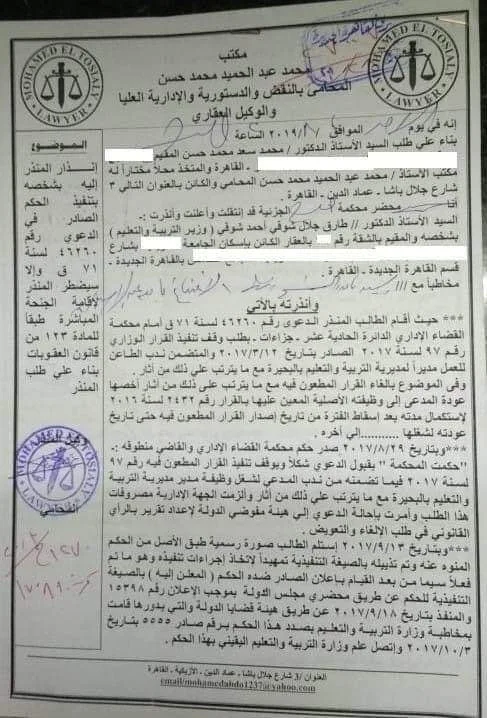 مكتب
محمد عبد الحميد محمد حسن
المحامى بالنقض والدستورية والإدارية العليا
والوكيل العقاري
MOHAMED EL TOSIALY
LAWYER
MOHAMED EL TOSIALY
LAWYER
إنه في يوم الموافق / /٢٠١٩ الساعة
بناء علي طلب السيد الأستاذ الدكتور / محمد سعد محمد حسن المقيم
- القاهرة والمتخذ محلاً مختاراً له
مكتب الأستاذ / محمد عبد الحميد محمد حسن المحامي والكائن بالعنوان التالي ٣
شارع جلال باشا - عماد الدين - القاهرة .
أنا محضر محكمة الجزئية قد إنتقلت وأعلنت وأنذرت :-
السيد الأستاذ الدكتور / طارق جلال شوقي أحمد شوقي ( وزير التربية والتعليم )
بشخصه والمقيم بالشقة رقم بالعقار الكائن بإسكان الجامعة بشارع
بالقاهرة الجديدة -
قسم القاهرة الجديدة - القاهرة .
مخاطباً مع ///
وأنذرته بالآتي
*** حيث أقام الطالب المنذر الدعوى رقم ٤٦٢٦٠ لسنة ٧١ ق أمام محكمة
القضاء الإداري الدائرة الحادية عشر - جزاءات - بطلب وقف تنفيذ القرار الوزاري
رقم ٩٧ لسنة ٢٠١٧ الصادر بتاريخ ٢٠١٧/٣/١٢ والمتضمن ندب الطاعن
للعمل مديراً لمديرية التربية والتعليم بالبحيرة مع ما يترتب علي ذلك من آثار .
وفى الموضوع بالغاء القرار المطعون فيه مع ما يترتب علي ذلك من آثار أخصها
عودة المدعى إلى وظيفته الأصلية المعين عليها بالقرار رقم ٢٤٣٢ لسنة ٢٠١٦
لإستكمال مدته بعد إسقاط الفترة من تاريخ إصدار القرار المطعون فيه حتى تاريخ
عودته لشغلها ..........إلي أخره .
*** وبتاريخ ٢٠١٧/٨/٢٩ صدر حكم محكمة القضاء الاداري والقاضي منطوقه :-
"حكمت المحكمة " بقبول الدعوي شكلاً وبوقف تنفيذ القرار المطعون فيه رقم ٩٧
لسنة ٢٠١٧ فيما تضمنه من ندب المدعي لشغل وظيفة مدير مديرية التربية
والتعليم بالبحيرة مع ما يترتب علي ذلك من آثار وألزمت الجهة الإدارية مصروفات
هذا الطلب وأمرت بإحالة الدعوي إلي هيئة مفوضي الدولة لإعداد تقرير بالرأي
القانوني في طلب الإلغاء والتعويض .
*** وبتاريخ ٢٠١٧/٩/١٣ إستلم الطالب صورة رسمية طبق الأصل من الحكم
المنوه عنه وتم تذييله بالصيغة التنفيذية تمهيداً لاتخاذ إجراءات تنفيذه وهو ما تم
فعلاً سيما من بعد القيام بإعلان الصادر ضده الحكم ( المعلن إليه ) بالصيغة
التنفيذية للحكم عن طريق محضري مجلس الدولة بموجب الإعلان رقم ١٥٣٩٨
والمنفذ بتاريخ ٢٠١٧/٩/١٨ عن طريق هيئة قضايا الدولة والتي بدورها قامت
بمخاطبة وزارة التربية والتعليم بصدد هذا الحكم برقم صادر ٥٥٥٥ بتاريخ
٢٠١٧/١٠/٣ وإتصل علم وزارة التربية والتعليم اليقيني بهذا الحكم .
الموضوع
إنذار المنذر
إليه بشخصه
بتنفيذ الحكم
الصادر في
الدعوي رقم
٤٦٢٦٠ لسنة
٧١ ق وإلا
سيضطر المنذر
لإقامة الجنحة
المباشرة طبقاً
للمادة ١٢٣ من
قانون العقوبات
بناء علي طلب
المنذر
MOHAMED EL TOSIALY
LAWYER
المحامي
العنوان /٣ شارع جلال باشا . عماد الدين . الأزبكية . القاهرة
email/mohamedabdo1237@yahoo.com